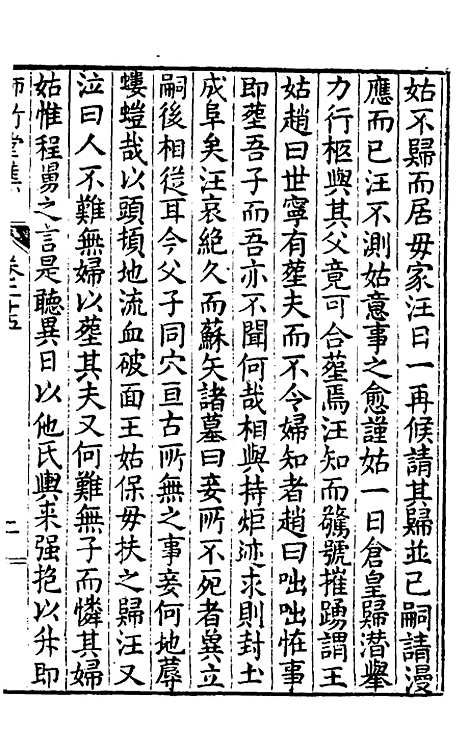 姑不歸而居母家汪日一再候請其歸並已嗣請漫
應而已汪不測姑意事之愈謹姑一日倉皇歸潛舉
力行柩與其父竟可合塟焉汪知而驚號摧踴謂王
姑趙曰世寧有塟夫而不令婦知者趙曰咄咄恠事
即塟吾子而吾亦不聞何哉相與持炬迹求則封土
成阜矣汪哀絕久而蘇矢諸墓曰妾所不死者兾立
嗣後相從耳今父子同穴亘古所無之事妾何地蓐
螻螘哉以頭頓地流血破面王姑保毋扶之歸汪又
泣曰人不難無婦以塟其夫又何難無子而憐其婦
姑惟程舅之言是聽異日以他氏輿来强抱以升即
師竹堂集
卷二十五
二